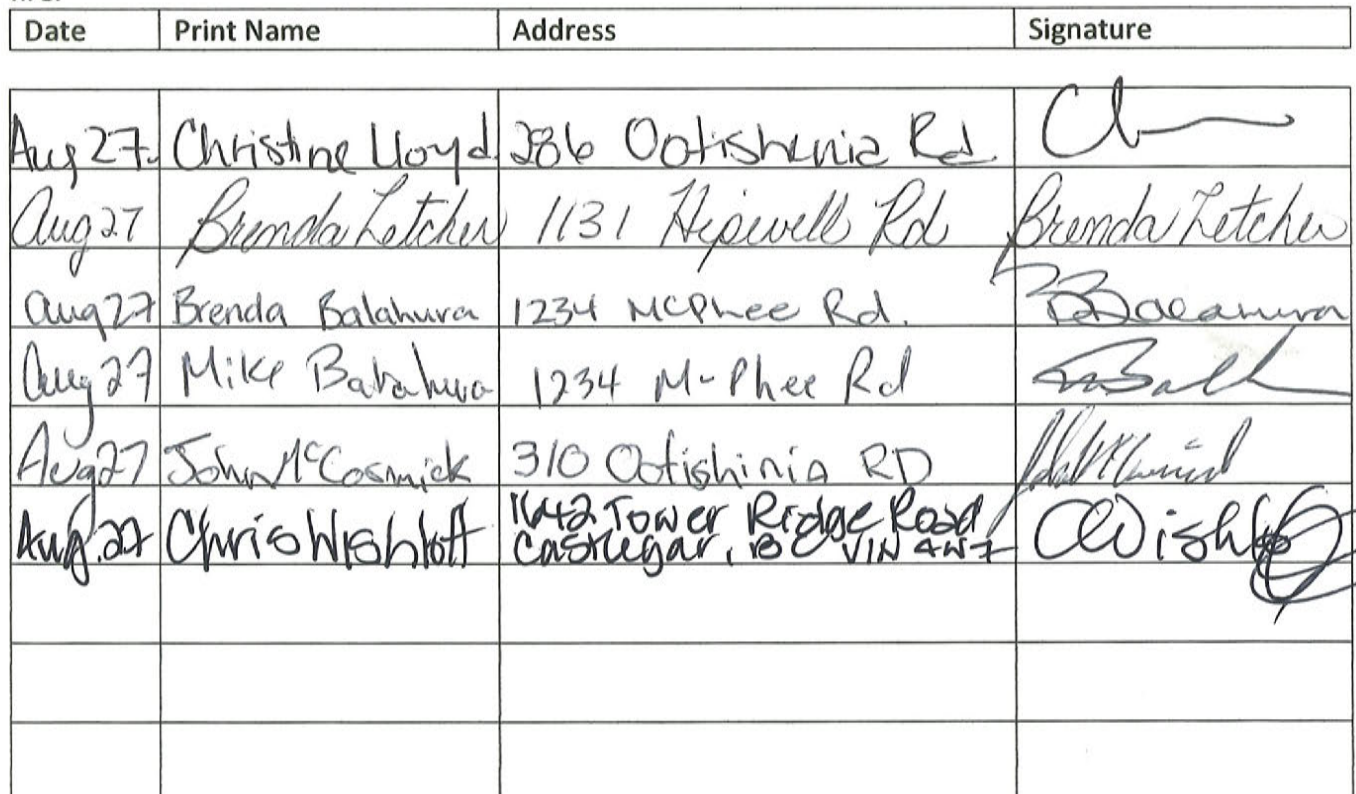 Date Print Name Address Signature
Aug 27. Christine Lloyd 286 Ootishenia Rd
Aug 27 Brenda Letcher 1131 Hipwell Rd Brenda Letcher
Aug 27 Brenda Balahura 1234 McPhee Rd. BBalahura
Aug 27 Mike Balahura 1234 M-Phee Rd
Aug 27 John McCormick 310 Ootishinia RD
1642 Tower Ridge Road
Aug. 27 Chris Wishloff Castlegar, BC V1N 4W7 CWishloff